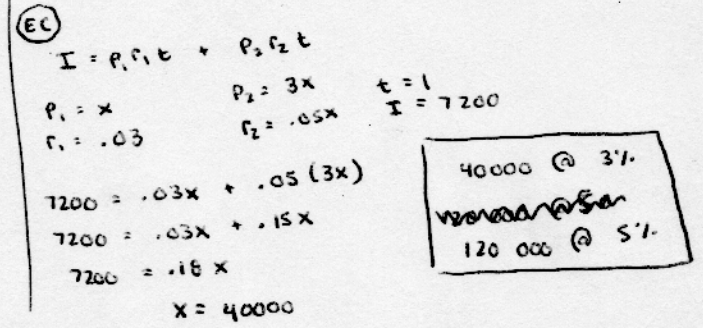 EC
I = P₁r₁t + P₂r₂t
P₁ = x P₂ = 3x t = 1
r₁ = .03 r₂ = .05x I = 7200
7200 = .03x + .05(3x)
7200 = .03x + .15x
7200 = .18x
x = 40000
40000 @ 3%
120 000 @ 5%